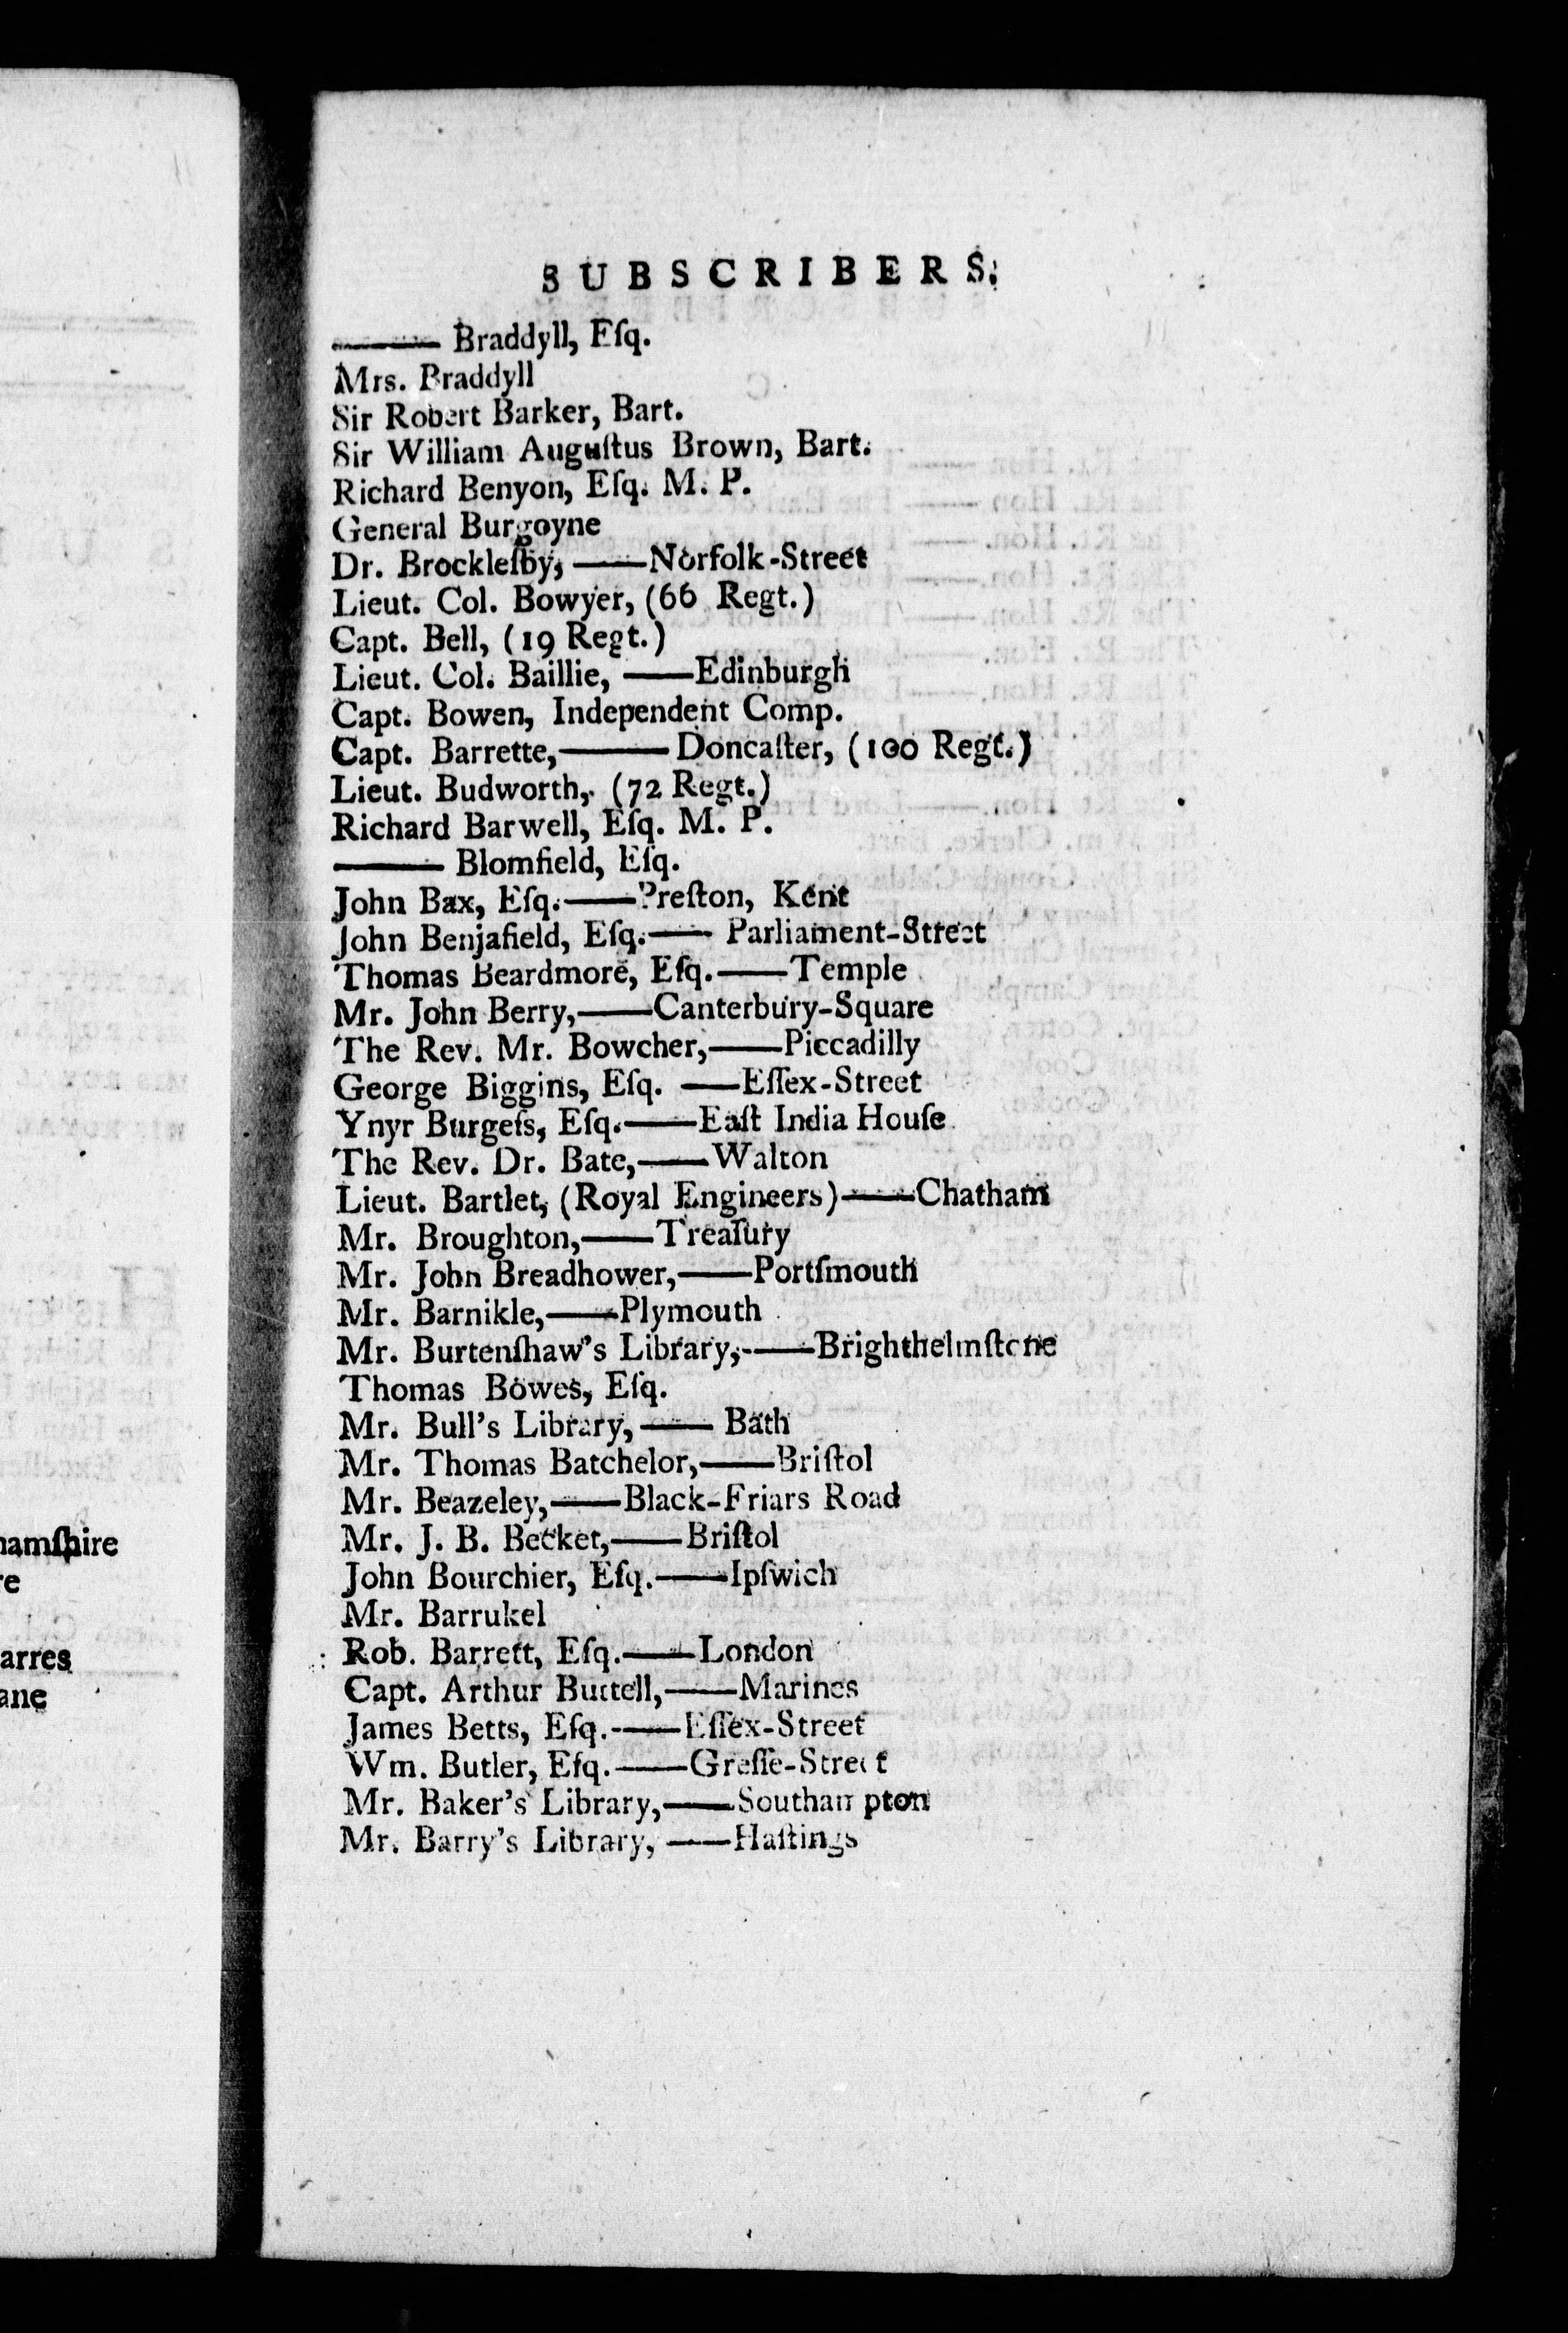 SUBSCRIBERS.
——— Braddyll, Eſq.
Mrs. Braddyll
Sir Robert Barker, Bart.
Sir William Auguſtus Brown, Bart.
Richard Benyon, Eſq. M. P.
General Burgoyne
Dr. Brockleſby, ——Norfolk-Street
Lieut. Col. Bowyer, (66 Regt.)
Capt. Bell, (19 Regt.)
Lieut. Col. Baillie, ——Edinburgh
Capt. Bowen, Independent Comp.
Capt. Barrette,——— Doncaſter, (100 Regt.)
Lieut. Budworth, (72 Regt.)
Richard Barwell, Eſq. M. P.
——— Blomfield, Eſq.
John Bax, Eſq.——Preſton, Kent
John Benjafield, Eſq.—— Parliament-Street
Thomas Beardmore, Eſq.——Temple
Mr. John Berry,——Canterbury-Square
The Rev. Mr. Bowcher,——Piccadilly
George Biggins, Eſq. ——Eſſex-Street
Ynyr Burgeſs, Eſq.——Eaſt India Houſe
The Rev. Dr. Bate,——Walton
Lieut. Bartlet, (Royal Engineers)——Chatham
Mr. Broughton,——Treaſury
Mr. John Breadhower,——Portſmouth
Mr. Barnikle,——Plymouth
Mr. Burtenſhaw's Library,——Brighthelmſtone
Thomas Bowes, Eſq.
Mr. Bull's Library,—— Bath
Mr. Thomas Batchelor,——Briſtol
Mr. Beazeley,——Black-Friars Road
Mr. J. B. Becket,——Briſtol
John Bourchier, Eſq.——Ipſwich
Mr. Barrukel
Rob. Barrett, Eſq.——London
Capt. Arthur Buttell,——Marines
James Betts, Eſq.——Eſſex-Street
Wm. Butler, Eſq.——Greſſe-Street
Mr. Baker's Library,——Southampton
Mr. Barry's Library, ——Haſtings
hamſhire
re
arres
ane